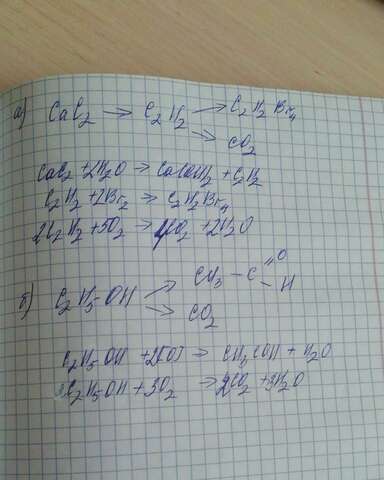 а) CaC₂ → C₂H₂ → C₂H₂Br₄
→ CO₂
CaC₂ + 2H₂O → Ca(OH)₂ + C₂H₂
C₂H₂ + 2Br₂ → C₂H₂Br₄
2C₂H₂ + 5O₂ → 4CO₂ + 2H₂O
б) C₂H₅-OH → CH₃-C=O-H
→ CO₂
C₂H₅OH + → CH₃COH + H₂O
C₂H₅OH + 3O₂ → 2CO₂ + 3H₂O